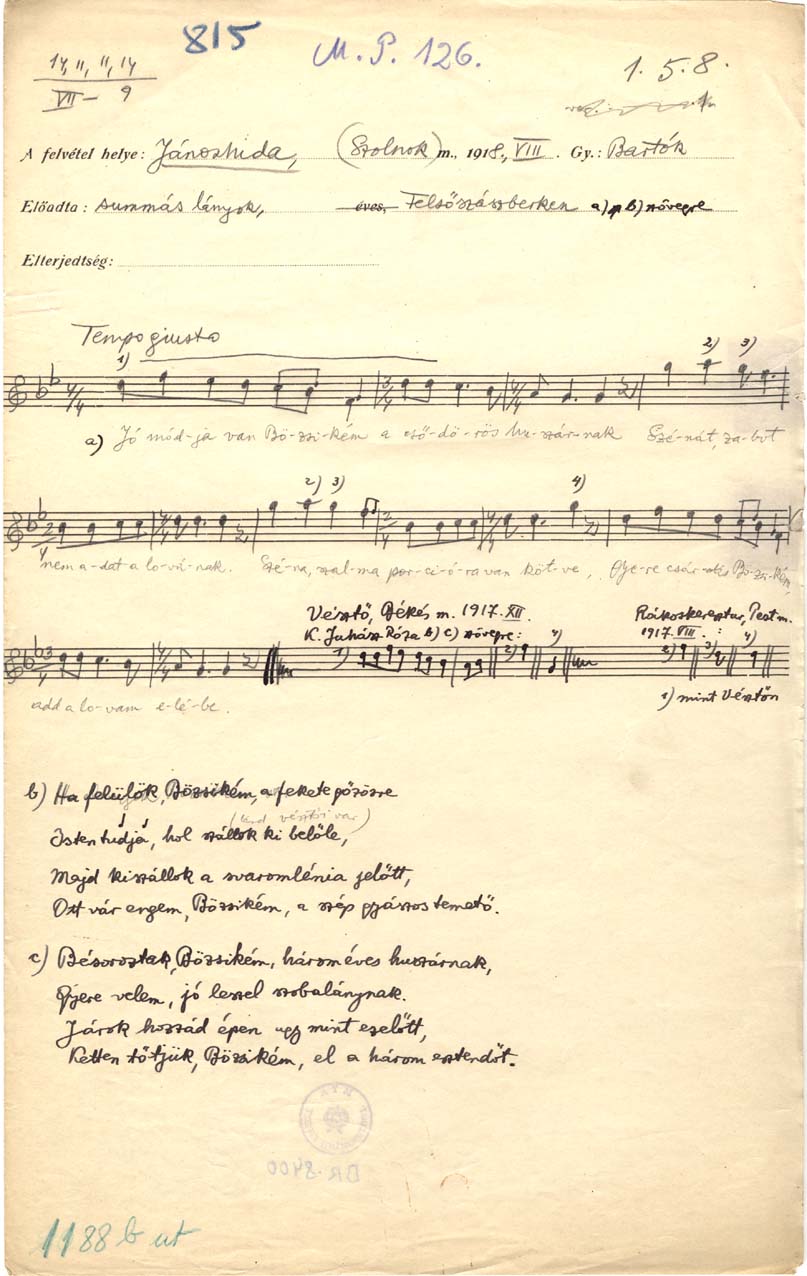 815
M. P. 126.
14, 11, 11, 14
VII – 9
1. 5. 8.
A felvétel helye: Jánoshida, (Szolnok) m., 1918., VIII. Gy.: Bartók
Előadta: summás lányok, éves, Felsőszászberken a) b) szövegre
Elterjedtség:
Tempo giusto
1) 2) 3)
a) Jó mód-ja van Bö-zsi-kém a cső-dö-rös hu-szár-nak Szé-nát, za-bot
2) 3) 4)
nem a-dat a lo-vá-nak. Szé-na, szal-ma por-ci-ó-ra van köt-ve, Gye-re csár-dás Bö-zsi-kém,
Vésztő, Békés m. 1917. XII.
K. Juhász Róza b) c) szövegre:
Rákoskeresztur, Pest m.
1917. VIII. :
1) 2) 4) 2) 3) 4)
1) mint Vésztőn
add a lo-vam e-lé-be.
b) Ha felülök, Bözsikém, a fekete gőzösre
(lásd vésztői var)
Isten tudja, hol szállok ki belőle,
Majd kiszállok a svaromlénia jelőtt,
Ott vár engem, Bözsikém, a szép gyászos temető.
c) Bésoroztak, Bözsikém, három éves huszárnak,
Gyere velem, jó leszel szobalánynak.
Járok hozzád épen ugy mint ezelőtt,
Ketten tőtjük, Bözsikém, el a három esztendőt.
BR-8400
1188 b ut